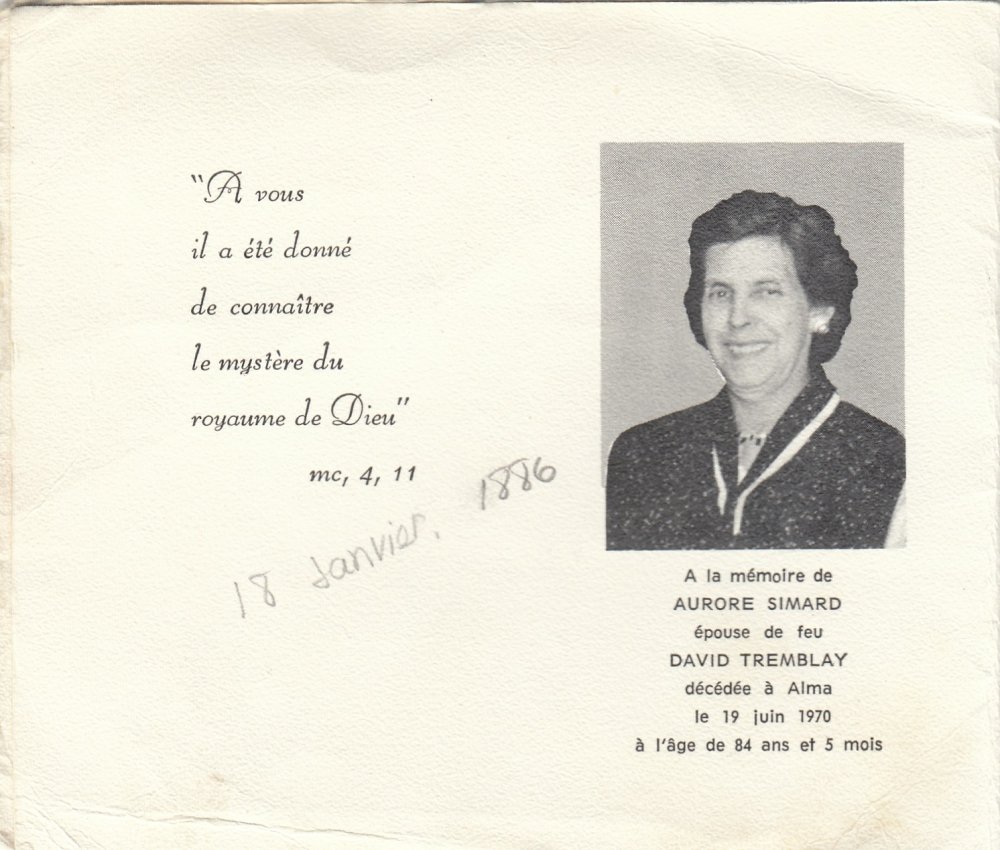 "A vous
il a été donné
de connaître
le mystère du
royaume de Dieu"
mc, 4, 11
18 Janvier. 1886
A la mémoire de
AURORE SIMARD
épouse de feu
DAVID TREMBLAY
décédée à Alma
le 19 juin 1970
à l'âge de 84 ans et 5 mois